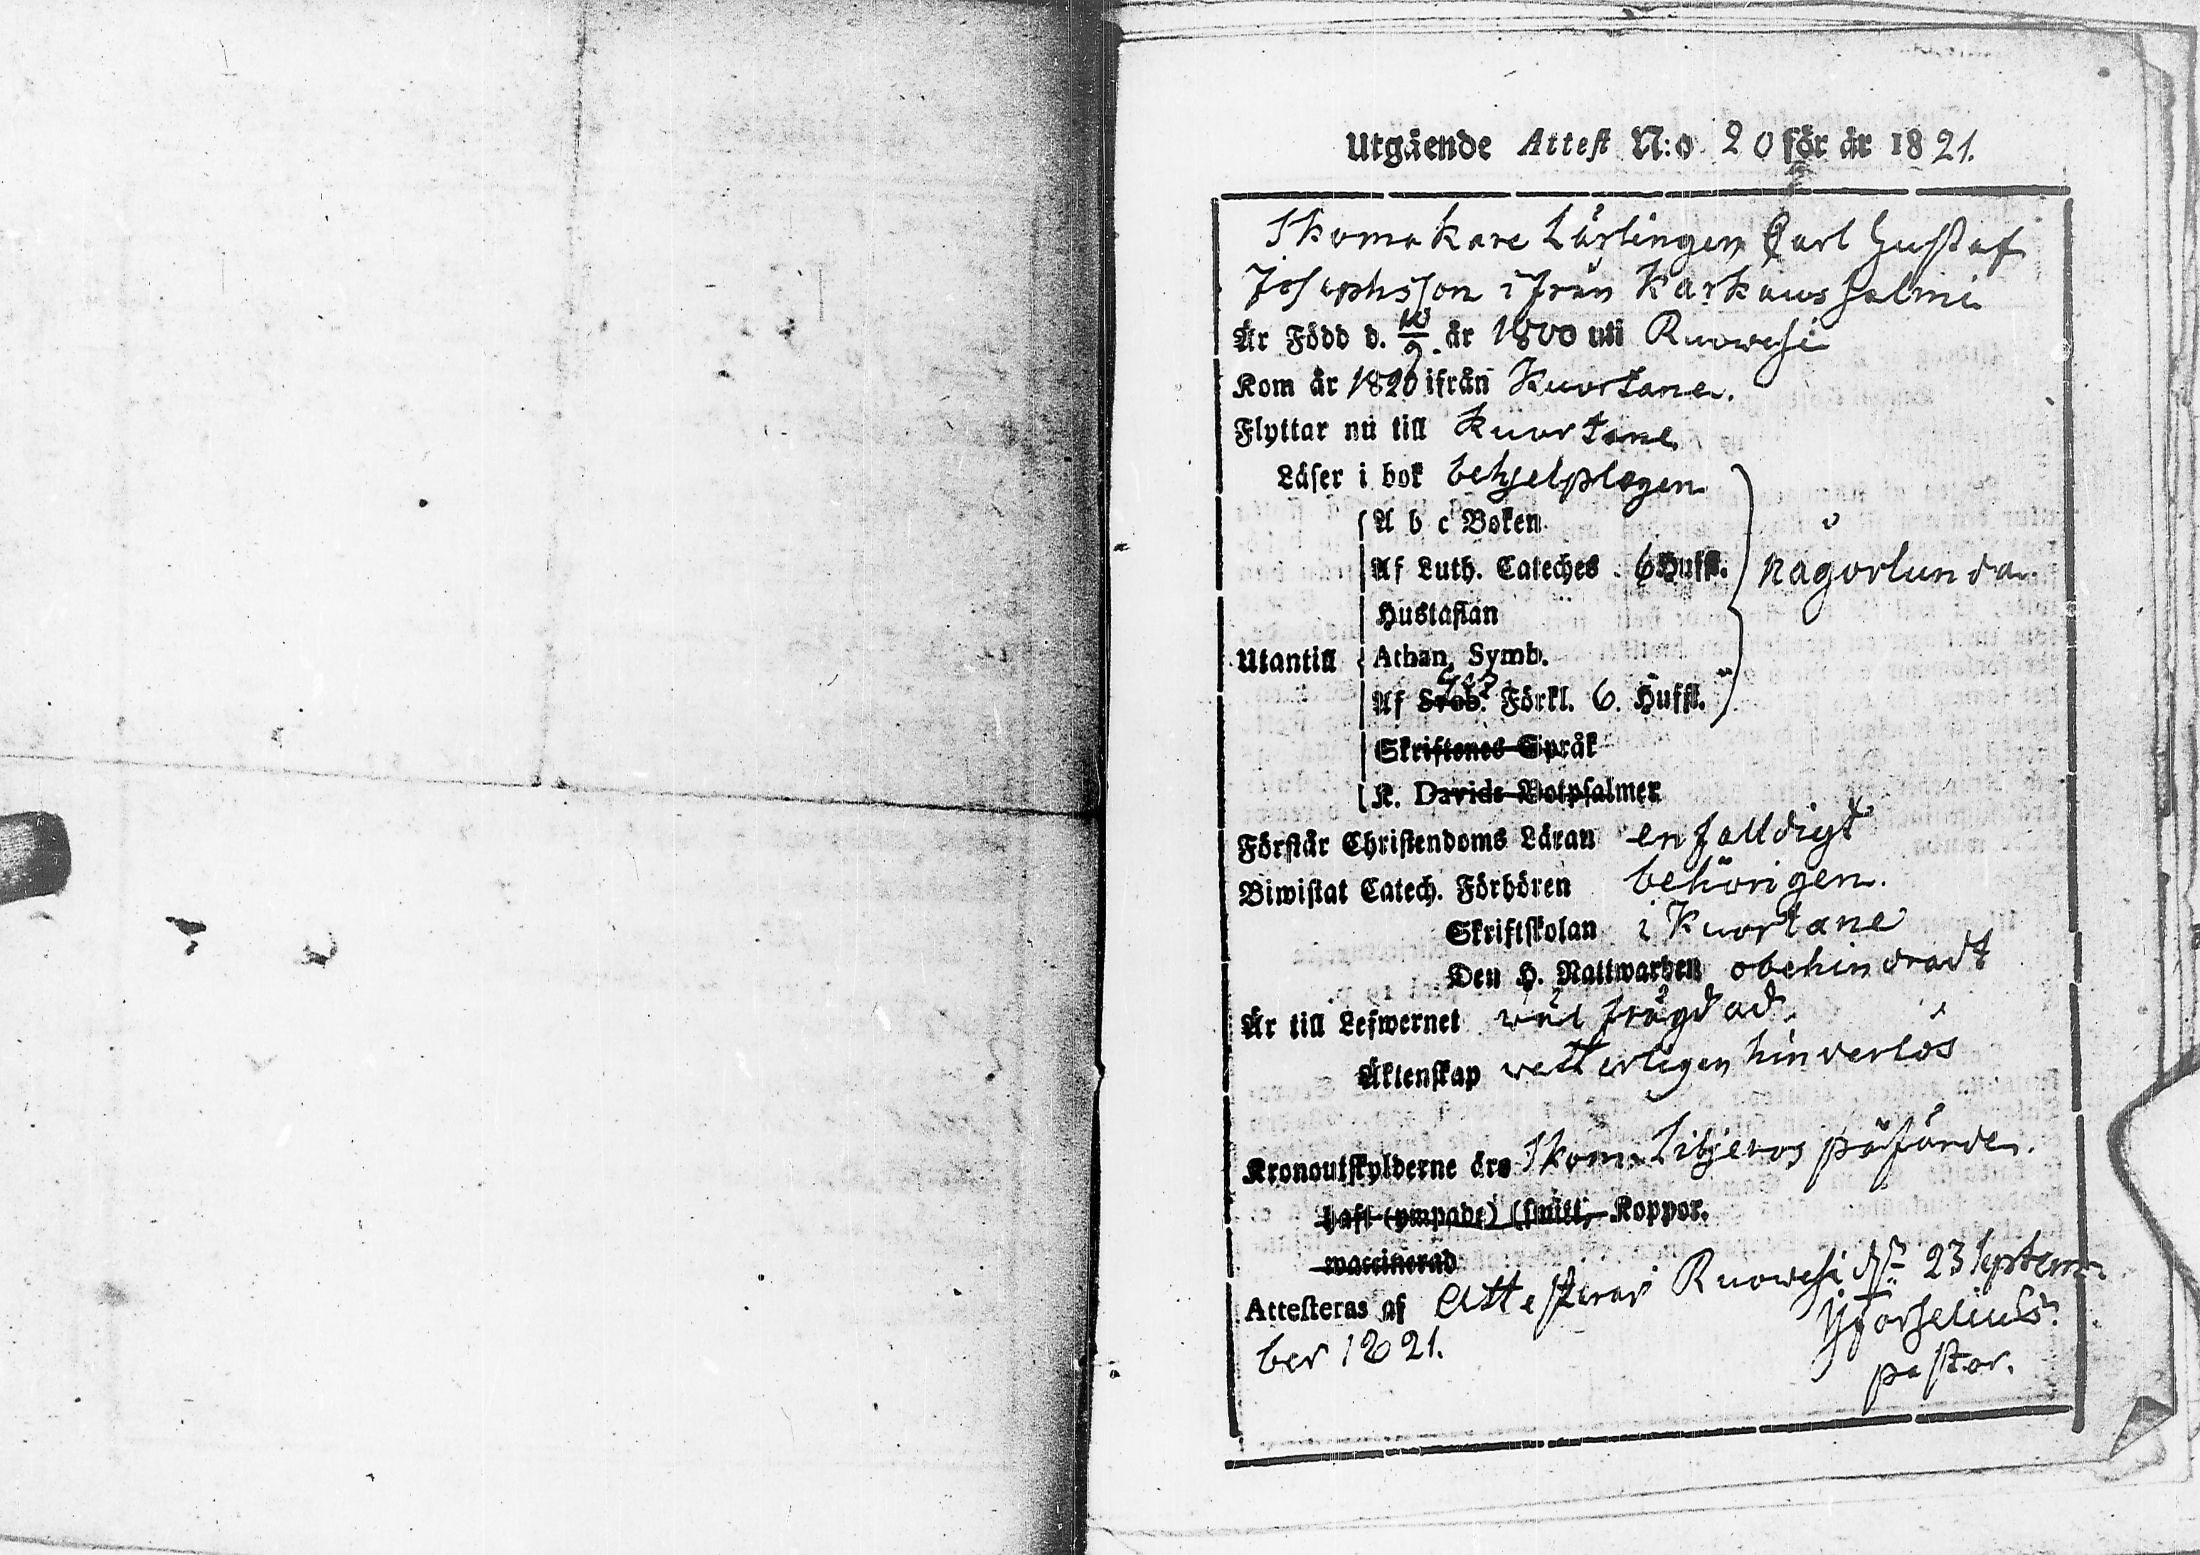 Utgående Attest N:o 20 för år 1821.
Skomakare Lärlingen Carl Gustaf
Josephsson ifrån Karkaussalmi
Är Född d. 10/9 år 1800 uti Ruowesi
Kom år 1820 ifrån Kuortane.
Flyttar nu till Kuortane
Läser i bok behjelpligen
A b c Boken
Af Luth. Cateches 6 Huffst. någorlunda
Hustaflan
Utantill Athan. Symb.
Af Sveb. Förkl. 6. Huffst.
Skriftenes Språk
K. Davids Botpsalmer
Förstår Christendoms Läran enfalldigt
Biwistat Catech. Förhören behörigen.
Skriftskolan i Kuortane
Den H. Nattwarden obehindradt
Är till Lefwernet wäl frägdad.
Äktenskap wetterligen hinderlös
Kronoutskylderne äro Skom. Liljeros påförde.
haft (ympade) (smitt, Koppor.
waccinerad
Attesteras af Attesterar Ruowesi d. 23 Septem-
ber 1821. Forselius.
pastor.